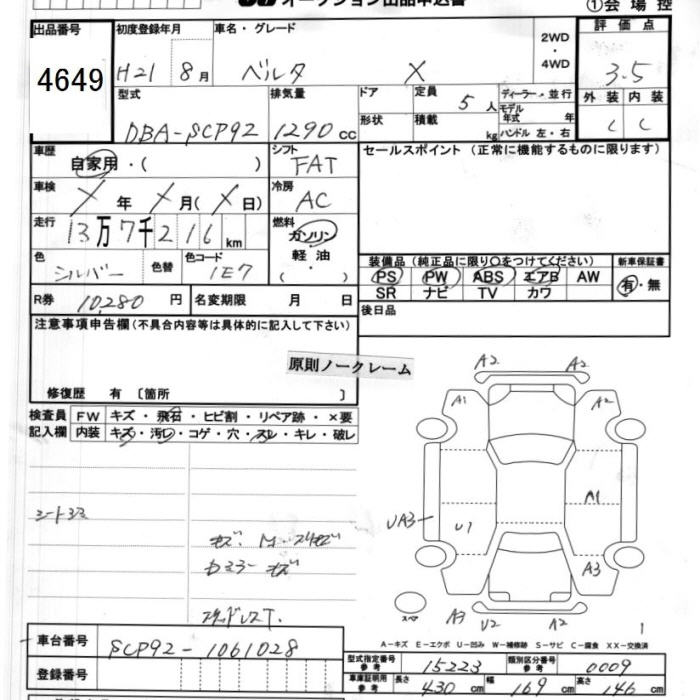 オークション出品申込書
①会場控
出品番号 初度登録年月 車名・グレード 2WD・4WD 評価点
4649 H21 8月 ベルタ X 3.5
型式 排気量 ドア 定員 5人 ディーラー・並行 外装 内装
DBA-SCP92 1290cc 形状 積載 kg モデル年式 年 C C
ハンドル 左・右
車歴 自家用・( ) シフト FAT セールスポイント(正常に機能するものに限ります)
車検 X年 X月(X日) 冷房 AC
走行 13万7千216km 燃料 ガソリン
軽油
( ・ )
色 シルバー 色替 色コード 1E7 装備品(純正品に限り○をつけてください) 新車保証書
PS PW ABS エアB AW 有・無
R券 10,280円 名変期限 月 日 SR ナビ TV カワ
注意事項申告欄(不具合内容等は具体的に記入して下さい) 後日品
原則ノークレーム
修復歴 有〔箇所 〕
検査員 FW キズ・飛石・ヒビ割・リペア跡・×要
記入欄 内装 キズ・汚レ・コゲ・穴・スレ・キレ・破レ
A2 A2
A1 A2
A1
UA3 U1
A3
スペア A3 U2 A2
1
A-キズ E-エクボ U-凹み W-補修跡 S-サビ C-腐食 XX-交換済
車台番号 SCP92-1061028
型式指定番号 参考 15223 類別区分番号 参考 0009
登録番号
車庫証明用 参考 長さ 430cm 幅 169cm 高さ 146cm